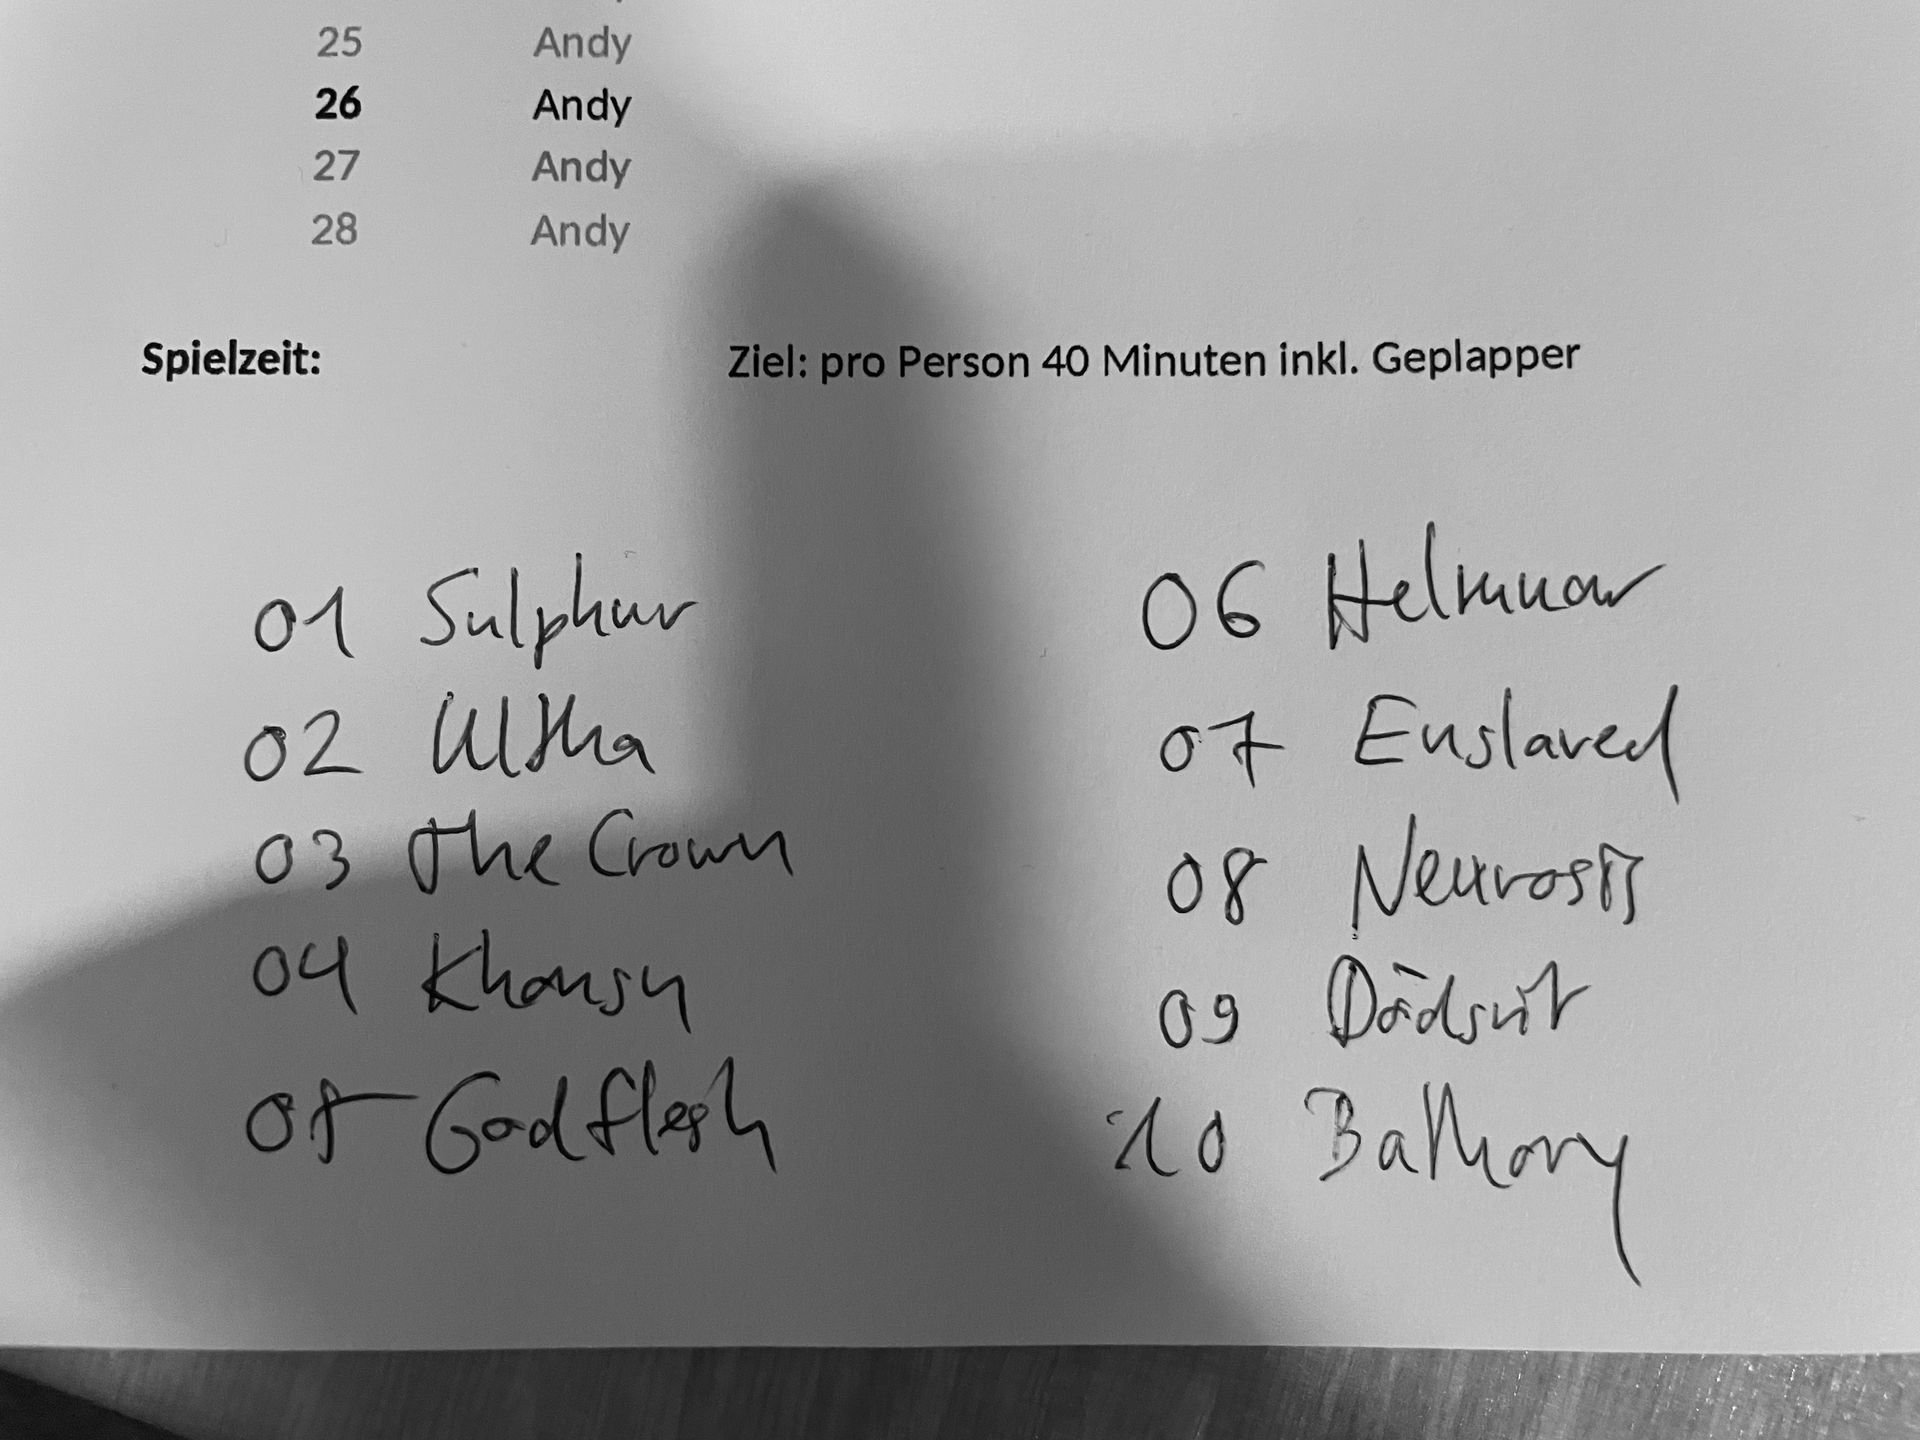 25 Andy
26 Andy
27 Andy
28 Andy
Spielzeit: Ziel: pro Person 40 Minuten inkl. Geplapper
01 Sulphur
02 Ultha
03 The Crown
04 Khonsu
05 Godflesh
06 Helrunar
07 Enslaved
08 Neurosis
09 Dödsrit
10 Bathory